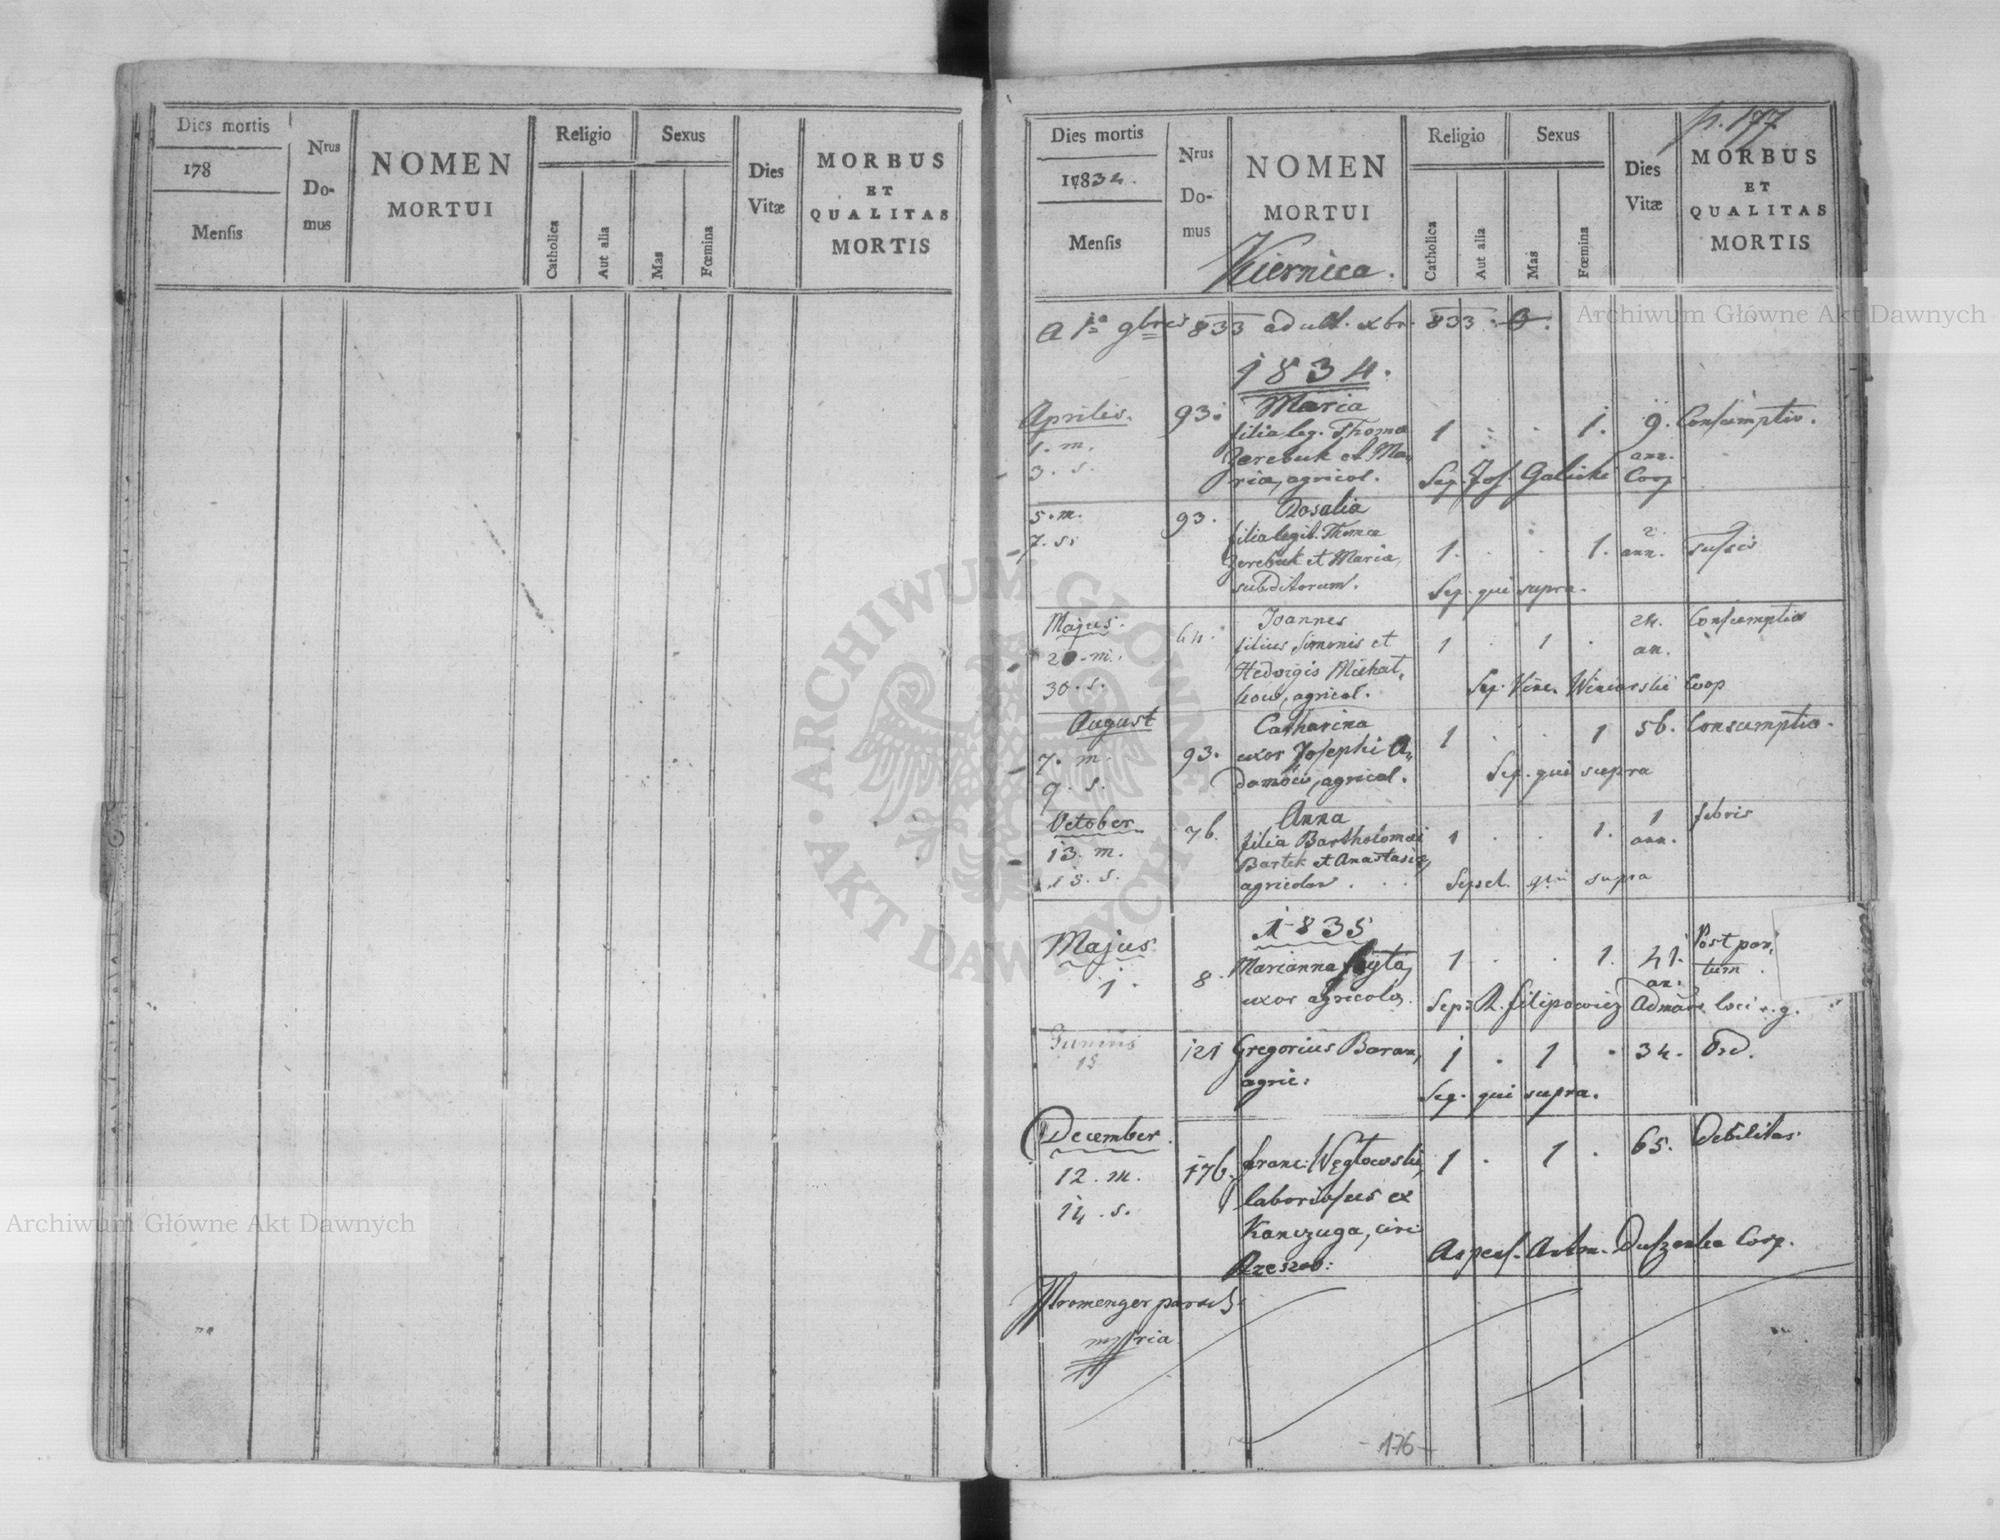 Dies mortis
178
Mensis
Nrus
Do-
mus
NOMEN
MORTUI
Religio
Catholica
Aut alia
Sexus
Mas
Fœmina
Dies
Vitæ
MORBUS
ET
QUALITAS
MORTIS
p. 177
Dies mortis
1834.
Mensis
Nrus
Do-
mus
NOMEN
MORTUI
Kiernica.
Religio
Catholica
Aut alia
Sexus
Mas
Fœmina
Dies
Vitæ
MORBUS
ET
QUALITAS
MORTIS
a 1a 9bris 833 ad ult. xbr. 833. 0.
1834.
Aprilis. 93. Maria
1. m. filia leg. Thomæ 1 . . 1. 9. Consumptio.
3. s. Zerebuk et Ma, ann.
riæ, agricol. Sep. Jos. Galicki Coop
5. m. 93. Rosalia
7. s. filia legit. Thomæ 2.
Zerebuk et Maria, 1. . . 1. ann. tussis
subditorum. Sep. qui supra.
Majus. 64. Joannes 24. Consumptio
m. filius Simonis et 1 . 1 . an.
30. s. Hedvigis Michat,
kow, agricol. Sep. Winiarski Coop
August Catharina 1 . . 1 56. Consumptio.
7. m. 93. uxor Josephi A,
9. s. damów, agricol. Sep. qui supra
October 76. Anna 1 febris
13. m. filia Bartholomæi 1 . . 1. ann.
15. s. Bartek et Anastasiæ,
agricolar. . . Sepel. qui supra
1835
Majus 8. Marianna 1 . . 1. 41. Post par,
1. uxor agricolæ. an. tum
Sep: R. Filipowicz Admóre loci r. g.
Junius 121 Gregorius Baran, 1 . 1 . 34. Ord.
15 agric: Sep. qui supra.
December 176. Franc: Węgłowski, 1 . 1 . 65. Debilitas.
12. m. laboriosus ex
14. s. Kanczuga, circ:
Rzeszov: Aspers. Anton. Duszenka Coop.
Kromenger paroch
mppria
176
Archiwum Główne Akt Dawnych
Archiwum Główne Akt Dawnych
ARCHIWUM GŁÓWNE · AKT DAWNYCH ·